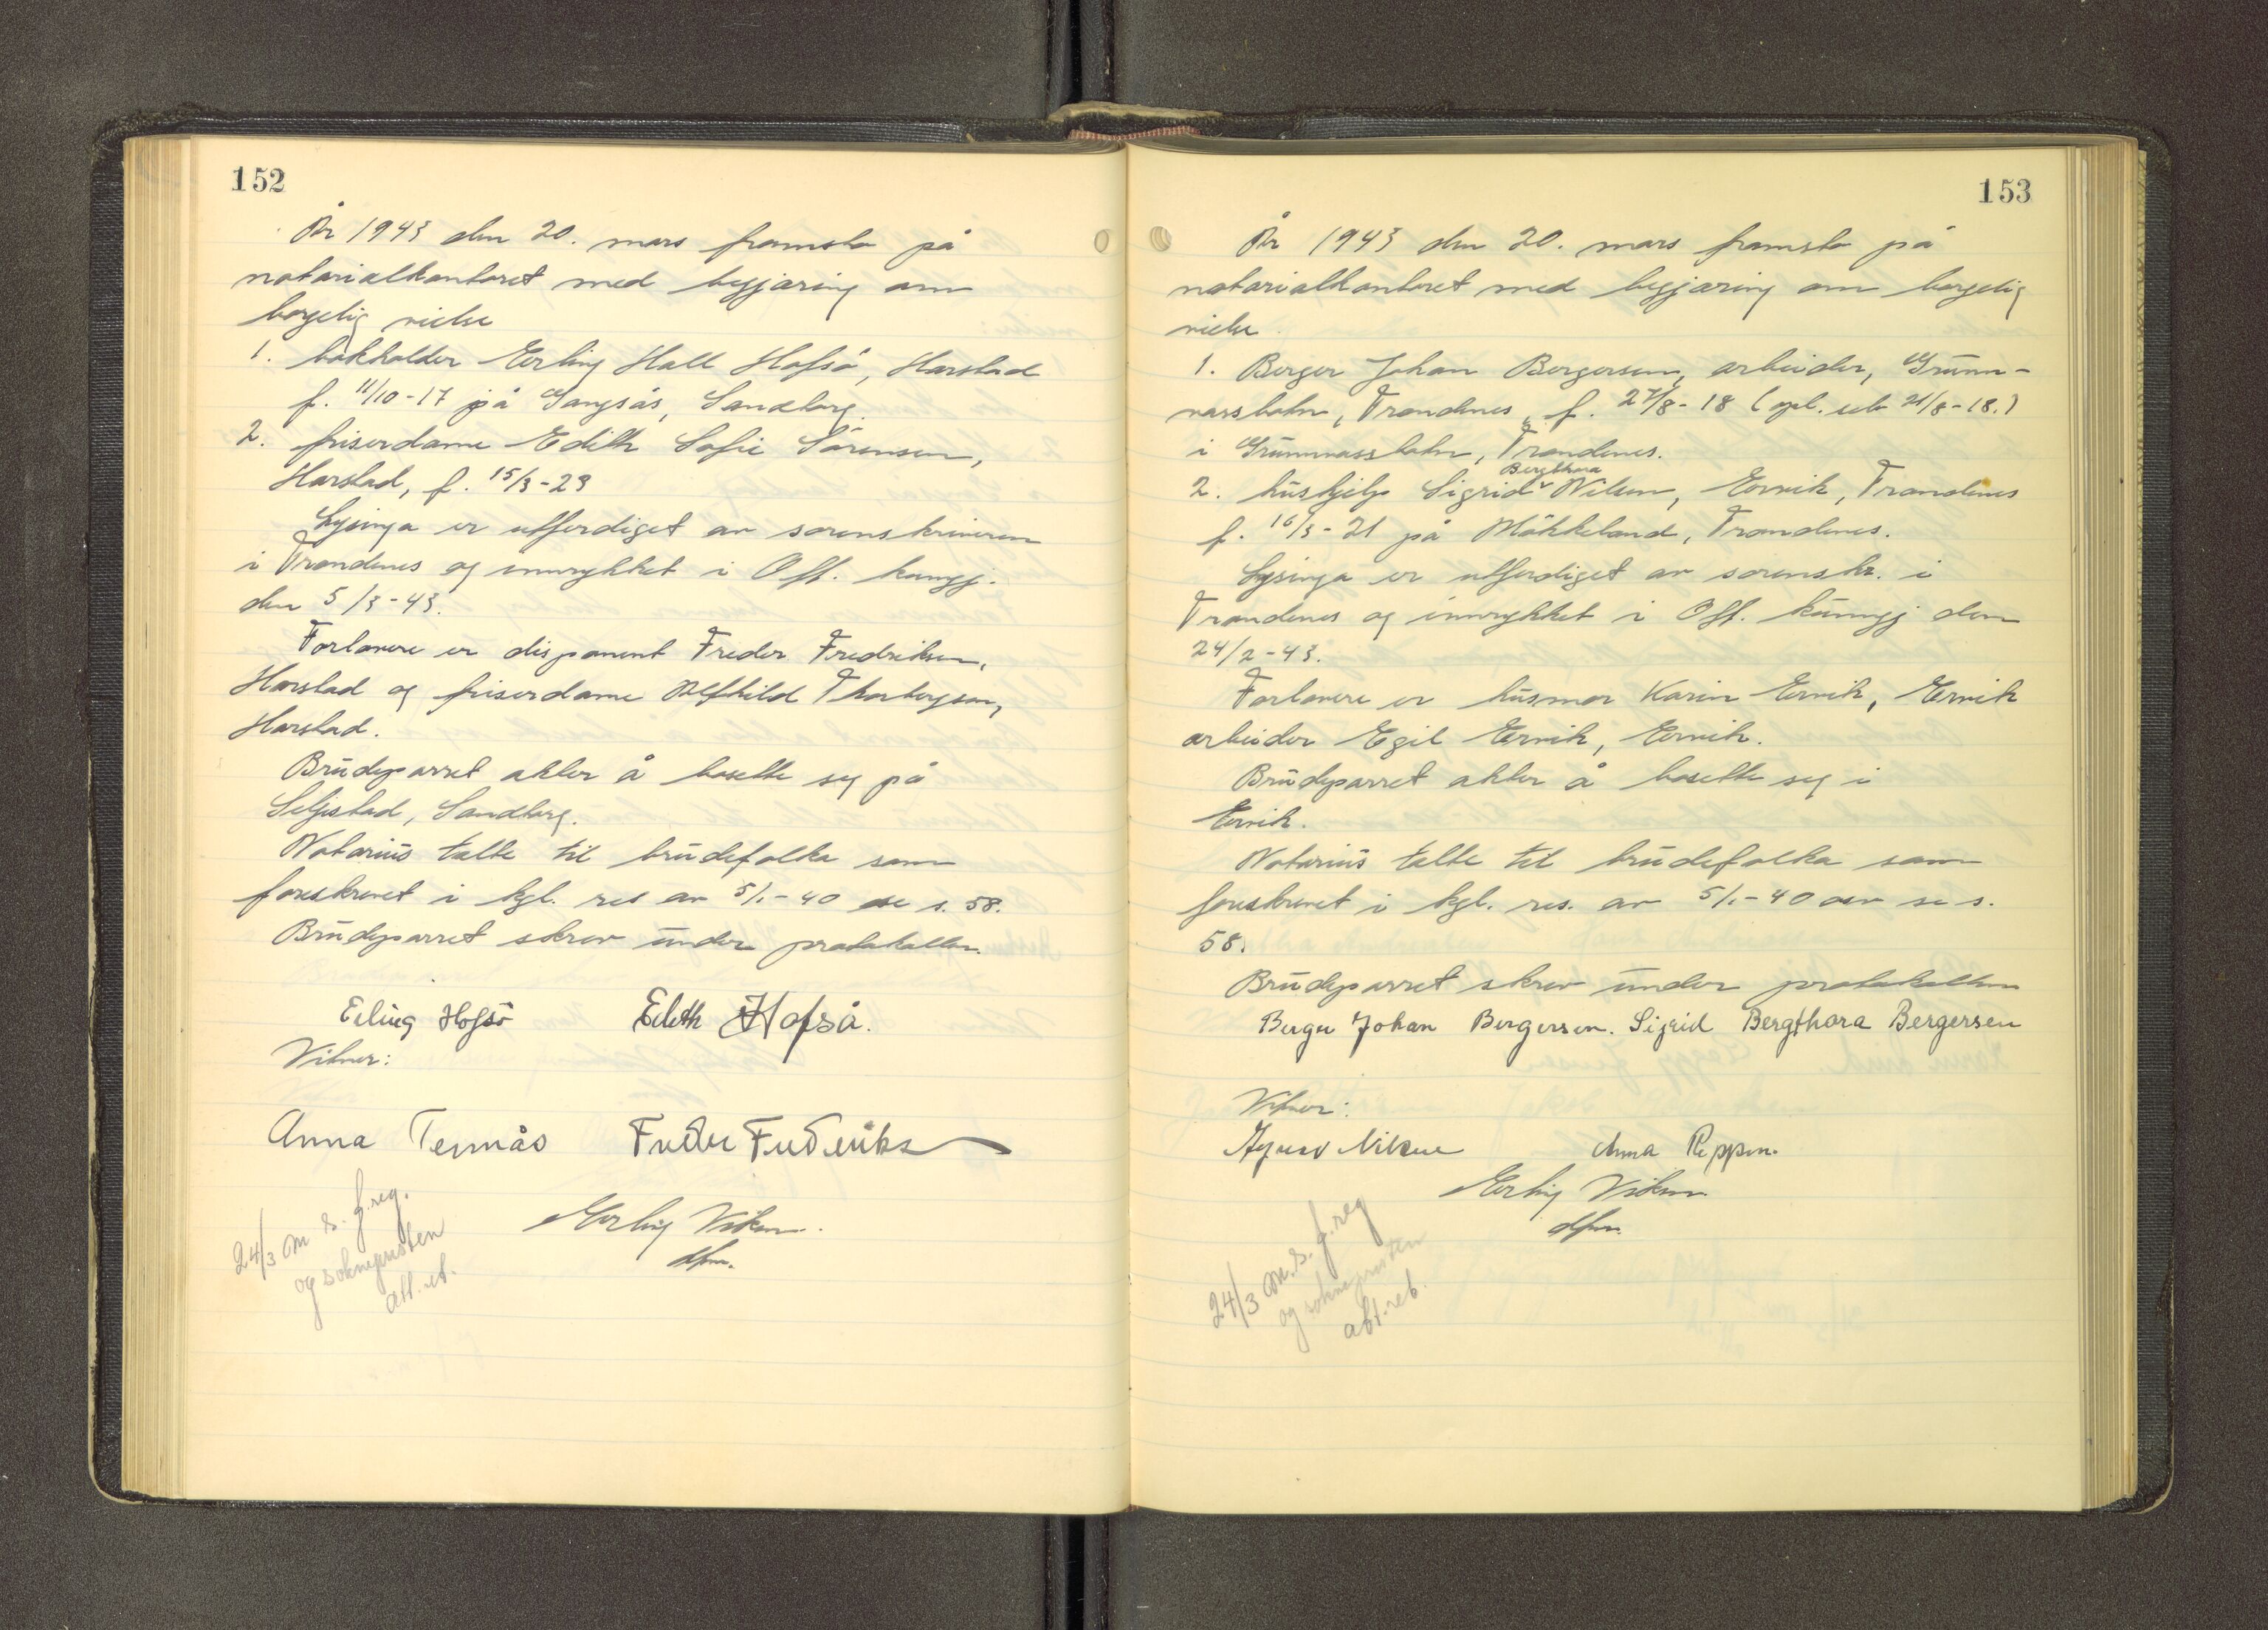 152
År 1943 den 20. mars framsto på
notarialkontoret med begjæring om
borgelig vielse
1. bokholder Erling Hall Hofsö, Harstad
f. 11/10-17 på Gangsås, Sandtorg.
2. friserdame Edith Sofie Sörensen,
Harstad, f. 15/3-23
Lysinga er utferdiget av sorenskriveren
i Trondenes og innrykket i Off. kungj.
den 5/3-43.
Forlovere er disponent Freder Fredriksen,
Harstad og friserdame Alfhild Thorbergsen,
Harstad.
Brudeparret akter å bosette seg på
Seljestad, Sandtorg.
Notarius talte til brudefolka som
foreskrevet i kgl. res av 5/1-40 se s. 58.
Brudeparret skrev under protokollen.
Erling Hofsö Edith Hofså.
Vitner:
Anna Ternnås Freder Frederiks
Erling Viken
dfm.
24/3 m s. f.reg.
og soknepresten
att. et.
153
År 1943 den 20. mars framsto på
notarialkontoret med begjæring om borgelig
vielse.
1. Berger Johan Bergersen, arbeider, Grunn-
vassbotn, Trondenes, f. 27/8-18 (opl. selv 21/8-18.)
i Grunnvassbotn, Trondenes.
2. hushjelp Sigrid Bergthora Nilsen, Ervik, Trondenes
f. 16/3-21 på Mökkeland, Trondenes.
Lysinga er utferdiget av sorenskr. i
Trondenes og innrykket i Off. kungj den
24/2-43.
Forlovere er husmor Karin Ervik, Ervik
arbeider Egil Ervik, Ervik.
Brudeparret akter å bosette seg i
Ervik.
Notarius talte til brudefolka som
foreskrevet i kgl. res. av 5/1-40 osv se s.
58.
Brudeparret skrev under protokollen
Berger Johan Bergersen. Sigrid Bergthora Bergersen
Vitner:
Nilsen Anna Reppen.
Erling Viken
dfm.
24/3 m.s. f.reg
og soknepresten
att. reb.